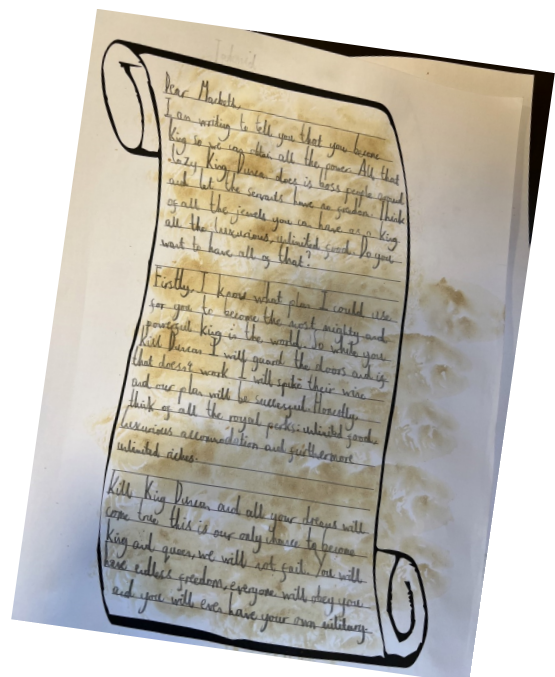 Dear Macbeth,
I am writing to tell you that you become
King so we can all the power. All that
Lazy King Duncan does is boss people around
and let the servants have no freedom. Think
of all the jewels you can have as a King
all the luxurious, unlimited food. Do you
want to have all of that?
Firstly, I know what plan I could use
for you to become the most mighty and
powerful King in the world. So while you
Kill Duncan I will guard the doors and if
that doesn't work I will spike their wine
and our plan will be successful. Honestly,
think of all the royal perks: unlimited food,
luxurious accommodation and furthermore
unlimited riches.
Kill King Duncan and all your dreams will
come true this is our only chance to become
King and queen, we will not fail. You will
have endless freedom, everyone will obey you
and you will even have your own military.